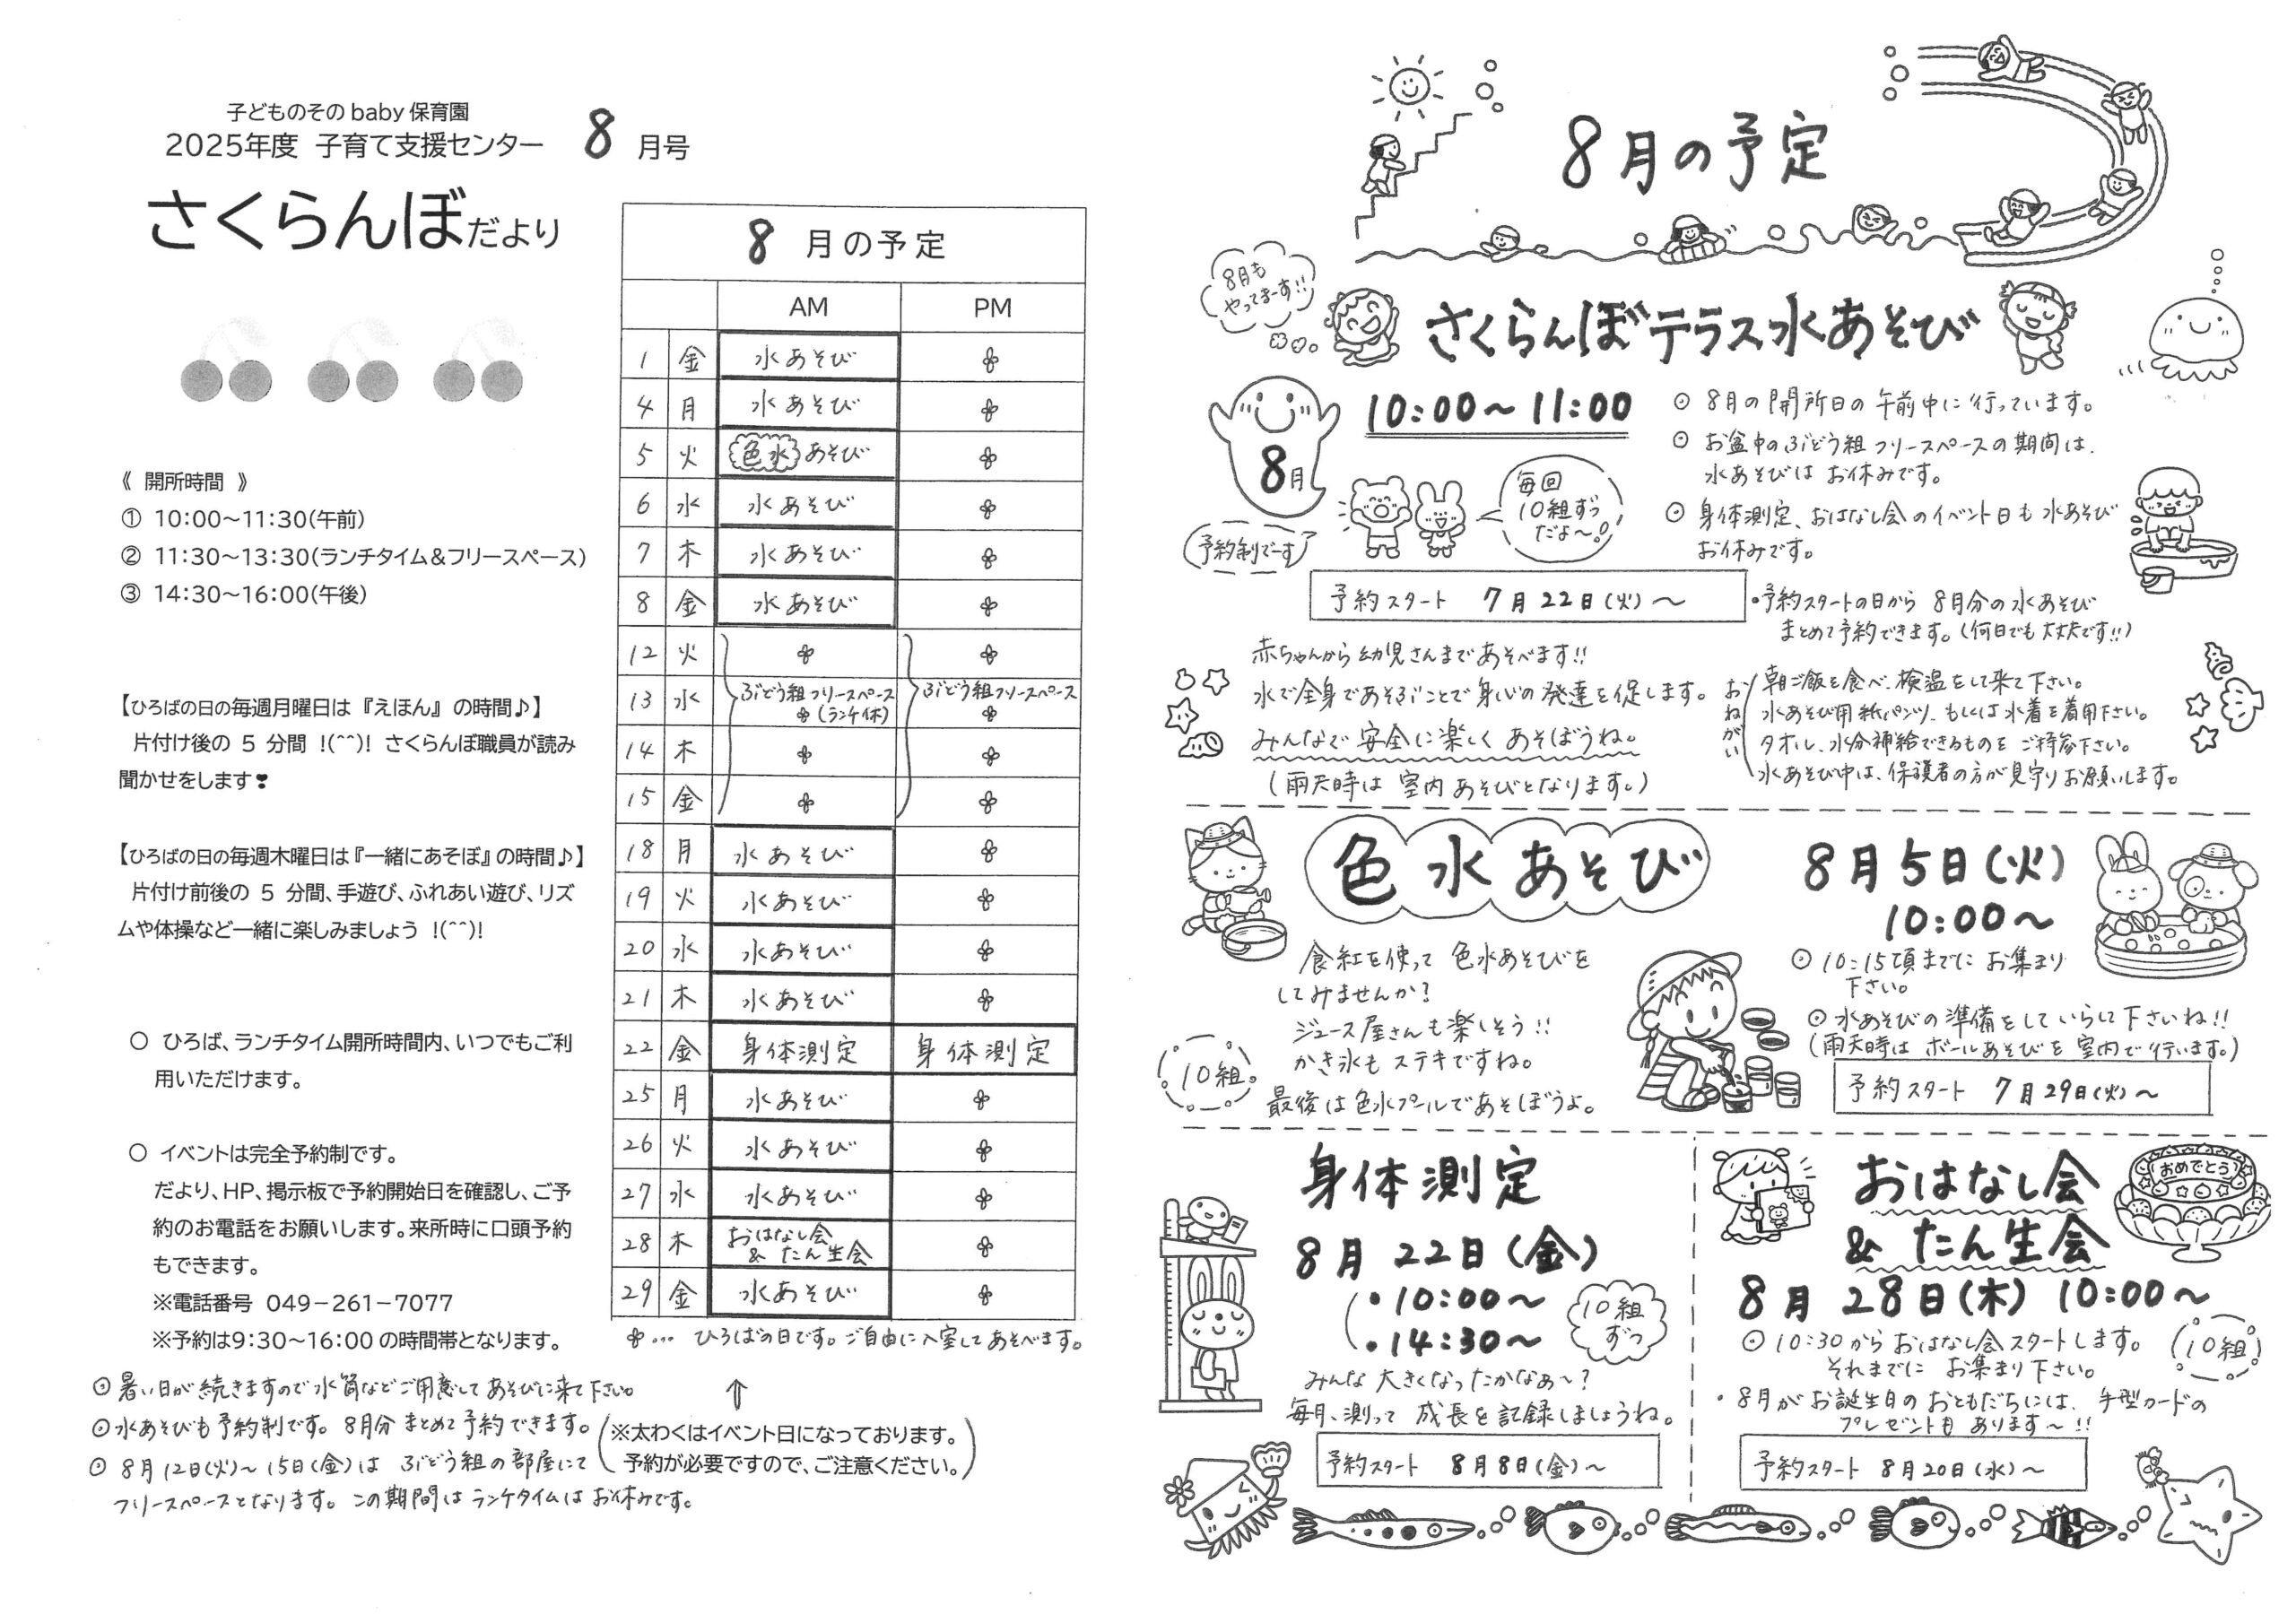 子どものそのbaby保育園
2025年度 子育て支援センター 8月号
さくらんぼだより
《 開所時間 》
① 10:00～11:30(午前)
② 11:30～13:30(ランチタイム＆フリースペース)
③ 14:30～16:00(午後)
【ひろばの日の毎週月曜日は『えほん』の時間♪】
片付け後の 5 分間 !(^^)! さくらんぼ職員が読み
聞かせをします❣
【ひろばの日の毎週木曜日は『一緒にあそぼ』の時間♪】
片付け前後の 5 分間、手遊び、ふれあい遊び、リズ
ムや体操など一緒に楽しみましょう !(^^)!
○ ひろば、ランチタイム開所時間内、いつでもご利
用いただけます。
○ イベントは完全予約制です。
だより、HP、掲示板で予約開始日を確認し、ご予
約のお電話をお願いします。来所時に口頭予約
もできます。
※電話番号 049－261－7077
※予約は9:30～16:00の時間帯となります。
◎暑い日が続きますので水筒などご用意してあそびに来て下さい。
◎水あそびも予約制です。8月分まとめて予約できます。
◎ 8月12日(火)～15日(金)は ぶどう組の部屋にて
フリースペースとなります。この期間はランチタイムはお休みです。
8 月の予定
AM PM
1 金 水あそび
4 月 水あそび
5 火 色水あそび
6 水 水あそび
7 木 水あそび
8 金 水あそび
12 火
13 水 ぶどう組フリースペース (ランチ休) ぶどう組フリースペース
14 木
15 金
18 月 水あそび
19 火 水あそび
20 水 水あそび
21 木 水あそび
22 金 身体測定 身体測定
25 月 水あそび
26 火 水あそび
27 水 水あそび
28 木 おはなし会 & たん生会
29 金 水あそび
… ひろばの日です。ご自由に入室してあそべます。
↑
(※太わくはイベント日になっております。
予約が必要ですので、ご注意ください。)
8月の予定
8月も
やってまーす!!
さくらんぼテラス水あそび
8月
10:00～11:00
予約制でーす
毎回
10組ずつ
だよ～!
◎ 8月の開所日の午前中に行っています。
◎ お盆中のぶどう組フリースペースの期間は、
水あそびは お休みです。
◎ 身体測定、おはなし会のイベント日も水あそび
お休みです。
予約スタート 7月22日(火)～
・予約スタートの日から 8月分の水あそび
まとめて予約できます。(何日でも大丈夫です!!)
赤ちゃんから幼児さんまであそべます!!
水で全身であそぶことで身心の発達を促します。
みんなで安全に楽しくあそぼうね。
(雨天時は室内あそびとなります。)
おねがい
朝ご飯を食べ、検温をして来て下さい。
水あそび用紙パンツ、もしくは水着を着用下さい。
タオル、水分補給できるものをご持参下さい。
水あそび中は、保護者の方が見守りお願いします。
色水あそび
8月5日(火)
10:00～
食紅を使って 色水あそびを
してみませんか?
ジュース屋さんも楽しそう!!
かき氷もステキですね。
最後は色水プールであそぼうよ。
10組
◎ 10:15頃までにお集まり
下さい。
◎ 水あそびの準備をしていらして下さいね!!
(雨天時はボールあそびを室内で行います。)
予約スタート 7月29日(火)～
身体測定
8月22日(金)
・10:00～
・14:30～
10組
ずつ
みんな大きくなったかなぁ～?
毎月、測って成長を記録しましょうね。
予約スタート 8月8日(金)～
おはなし会
& たん生会
おめでとう
8月28日(木) 10:00～
◎ 10:30からおはなし会スタートします。
それまでに お集まり下さい。
10組
・8月がお誕生日のおともだちには、手型カードの
プレゼントもあります～!!
予約スタート 8月20日(水)～